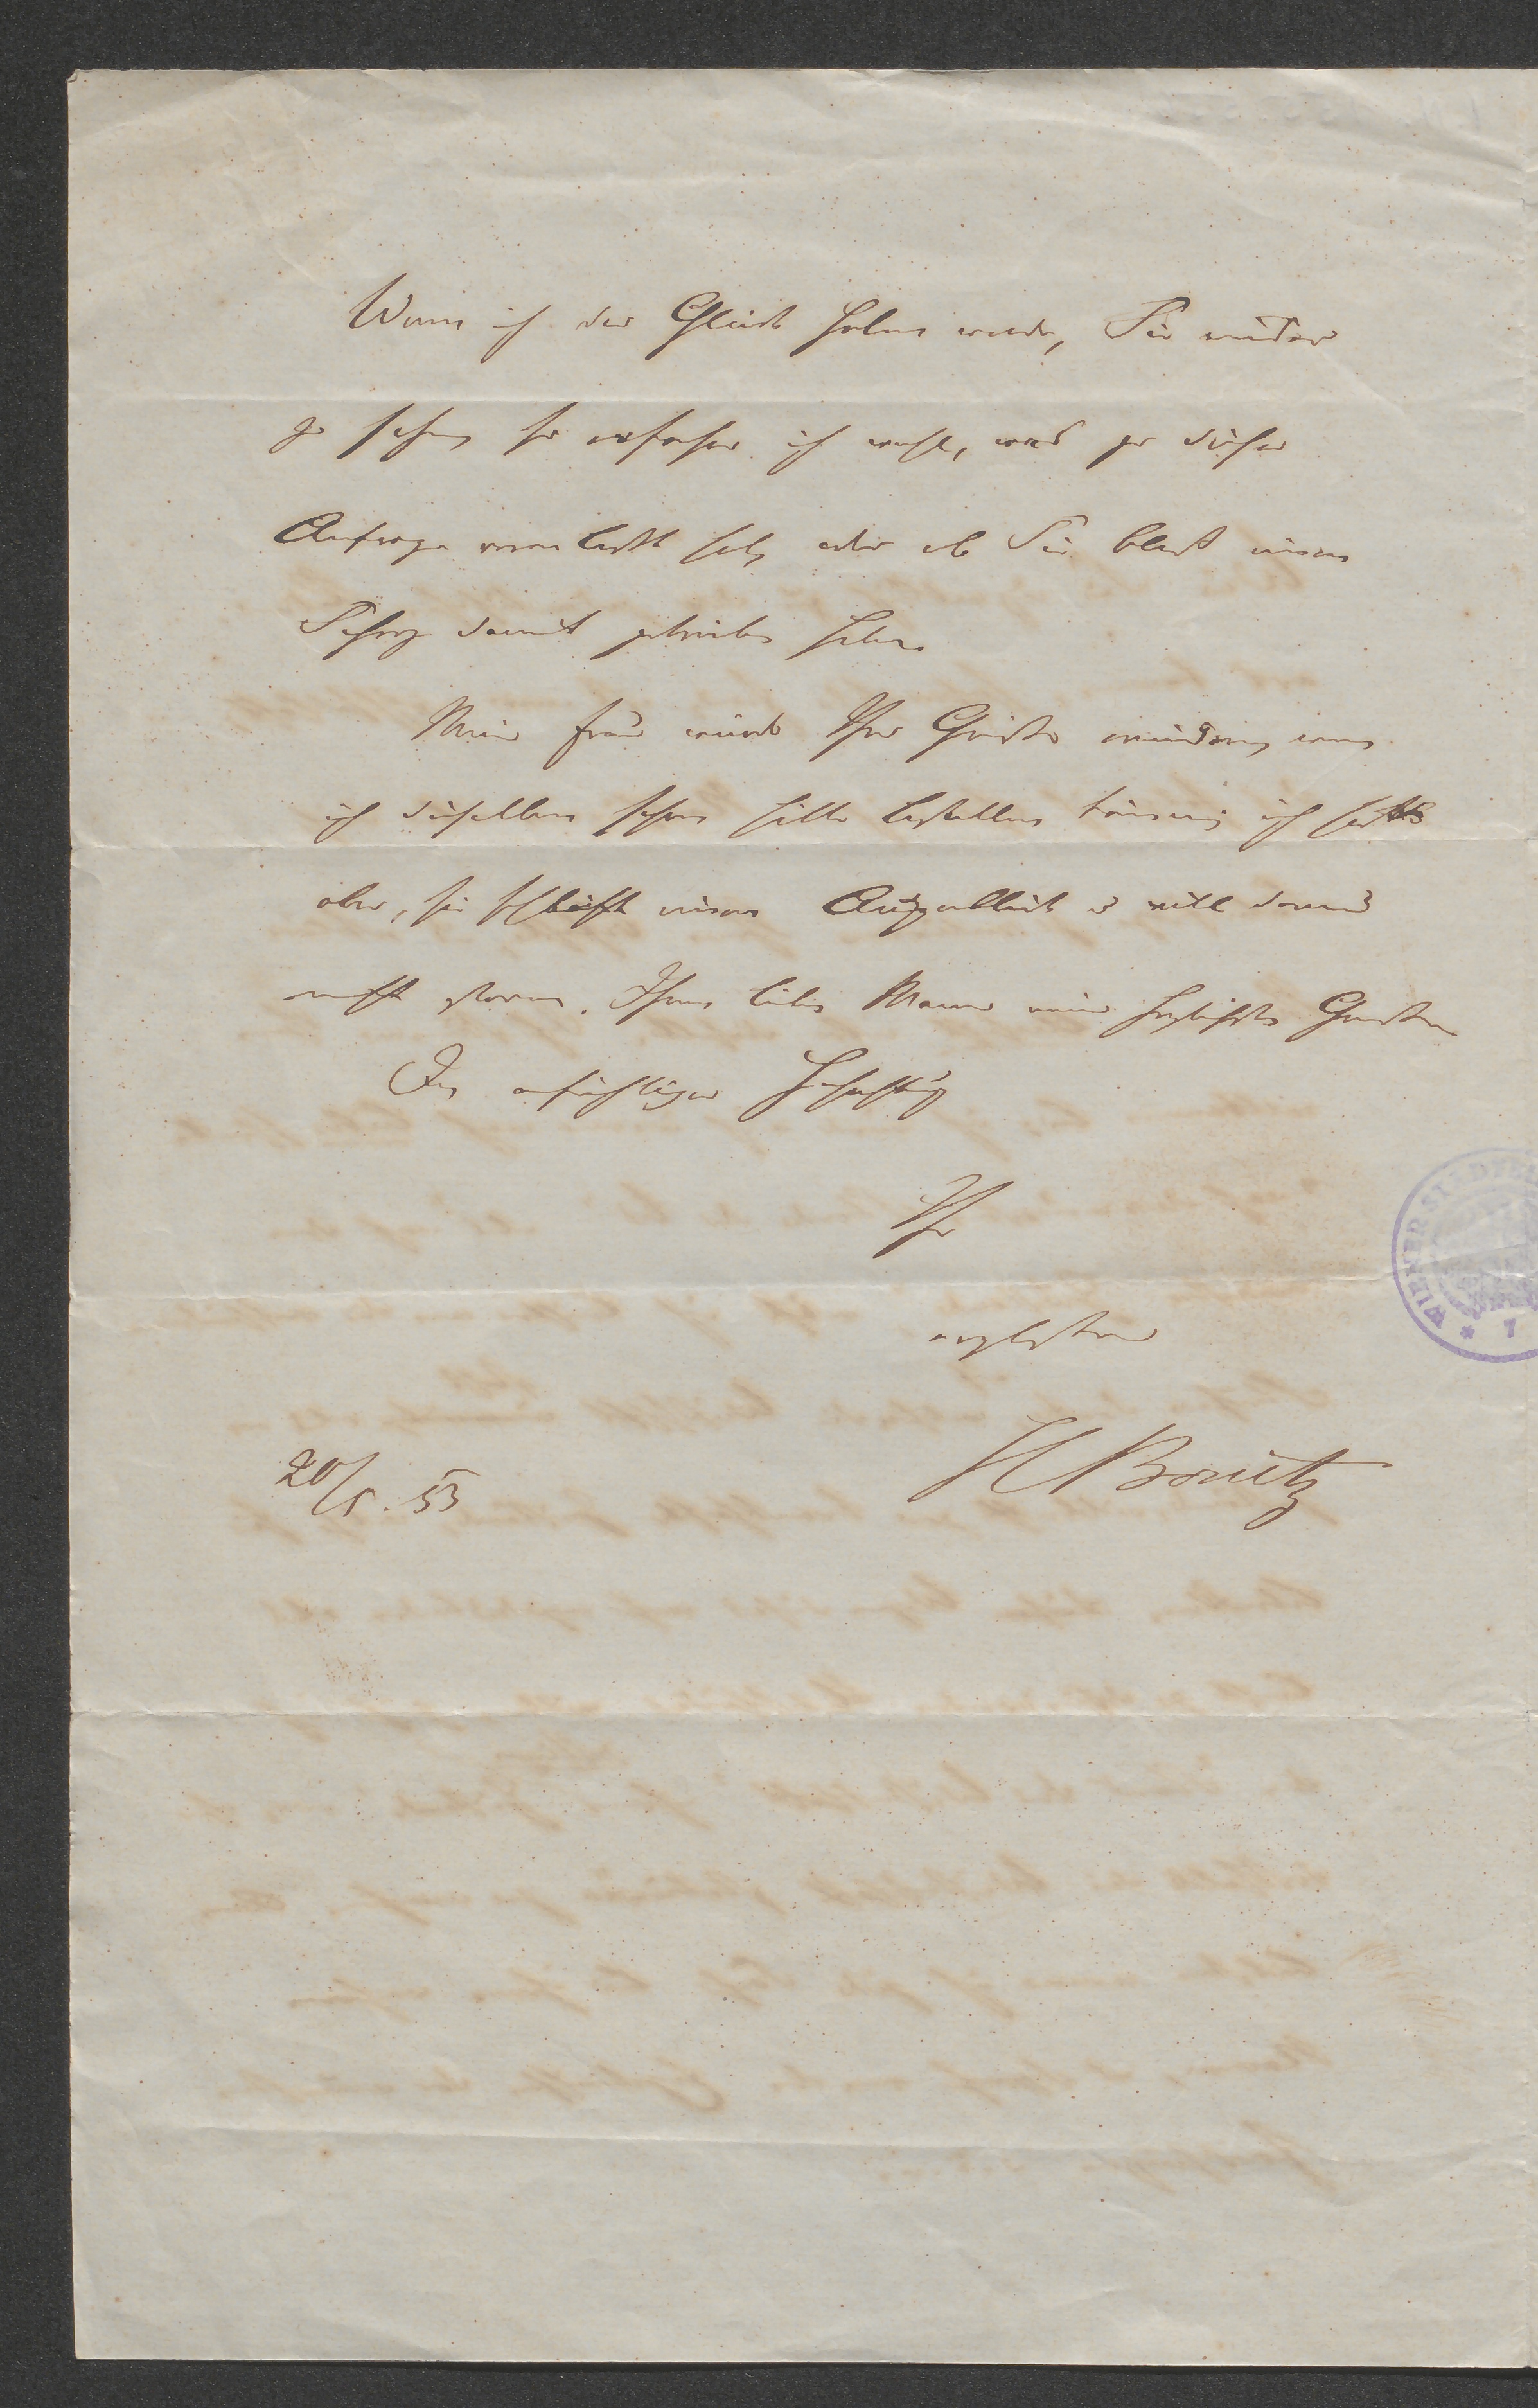 Wenn ich das Glück haben werde, Sie wieder
zu sehen, so erfahre ich wohl, was zu dieser
Anfrage veranlaßt hat, oder ob Sie bloß einen
Scherz damit getrieben haben.
Meine Frau würde Ihre Grüße erwiedern, wenn
ich dieselben schon hätte bestellen können; ich
aber, sie schläft einen Augenblick u will darum
nicht stören. Ihrem lieben Manne meine herzlichsten Grüße
In aufrichtiger Hochachtung
Ihr
ergebenster
HBonitz
20/5. 53
WIENER STADT
* 7